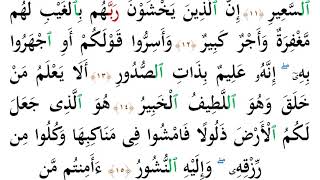 ٱلسَّعِيرِ ﴿١١﴾ إِنَّ ٱلَّذِينَ يَخْشَوْنَ رَبَّهُم بِٱلْغَيْبِ لَهُم
مَّغْفِرَةٌ وَأَجْرٌ كَبِيرٌ ﴿١٢﴾ وَأَسِرُّوا۟ قَوْلَكُمْ أَوِ ٱجْهَرُوا۟
بِهِۦٓ ۖ إِنَّهُۥ عَلِيمٌۢ بِذَاتِ ٱلصُّدُورِ ﴿١٣﴾ أَلَا يَعْلَمُ مَنْ
خَلَقَ وَهُوَ ٱللَّطِيفُ ٱلْخَبِيرُ ﴿١٤﴾ هُوَ ٱلَّذِى جَعَلَ
لَكُمُ ٱلْأَرْضَ ذَلُولًا فَٱمْشُوا۟ فِى مَنَاكِبِهَا وَكُلُوا۟ مِن
رِّزْقِهِۦ ۖ وَإِلَيْهِ ٱلنُّشُورُ ﴿١٥﴾ ءَأَمِنتُم مَّن